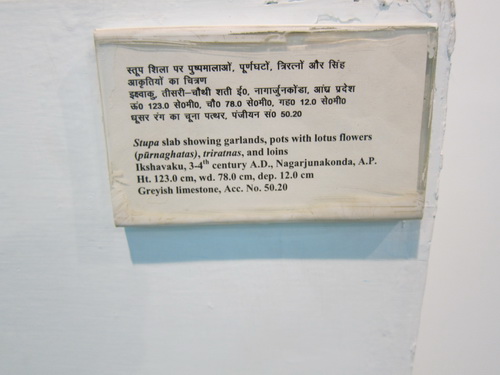 स्तूप शिला पर पुष्पमालाओं, पूर्णघटों, त्रिरत्नों और सिंह
आकृतियों का चित्रण
इक्ष्वाकु, तीसरी-चौथी शती ई०, नागार्जुनकोंडा, आंध्र प्रदेश
ऊं० 123.0 से०मी०, चौ० 78.0 से०मी०, गह० 12.0 से०मी०
धूसर रंग का चूना पत्थर, पंजीयन सं० 50.20
Stupa slab showing garlands, pots with lotus flowers
(pūrnaghatas), triratnas, and loins
Ikshavaku, 3-4th century A.D., Nagarjunakonda, A.P.
Ht. 123.0 cm, wd. 78.0 cm, dep. 12.0 cm
Greyish limestone, Acc. No. 50.20